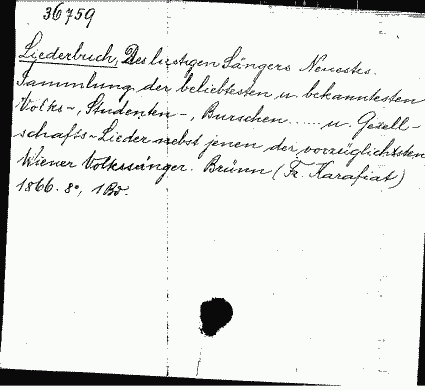 36759
Liederbuch, Des lustigen Sängers Neuestes.
Sammlung der beliebtesten u. bekanntesten
Volks-, Studenten-, Burschen...... u. Gesell-
schafts-Lieder nebst jenen der vorzüglichsten
Wiener Volkssänger. Brünn (Fr. Karafiat)
1866. 8°, 1 Bd.